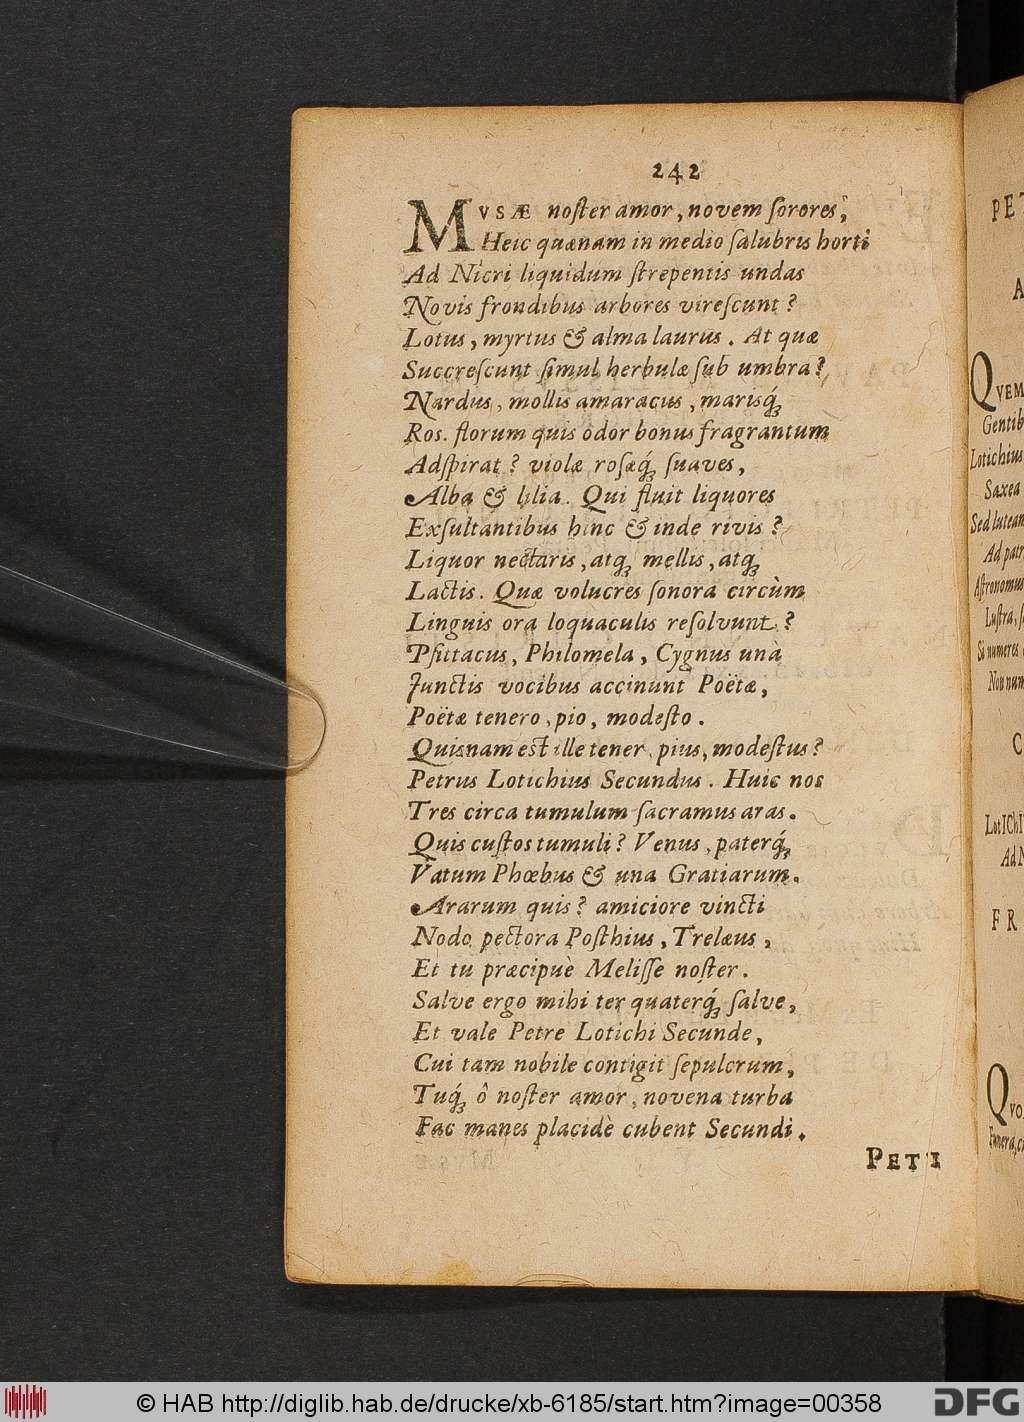 242
MVSÆ noſter amor, novem ſorores,
Heic quænam in medio ſalubris horti
Ad Nicri liquidum ſtrepentis undas
Novis frondibus arbores vireſcunt?
Lotus, myrtus & alma laurus. At quæ
Succreſcunt ſimul herbulæ ſub umbra?
Nardus, mollis amaracus, marisq́;
Ros. florum quis odor bonus fragrantum
Adſpirat? violæ roſæq́; ſuaves,
Alba & lilia. Qui fluit liquores
Exſultantibus hinc & inde rivis?
Liquor nectaris, atq; mellis, atq;
Lactis. Quæ volucres ſonora circùm
Linguis ora loquaculis reſolvunt?
Pſittacus, Philomela, Cygnus unà
Junctis vocibus accinunt Poëtæ,
Poëtæ tenero, pio, modeſto.
Quisnam est ille tener, pius, modeſtus?
Petrus Lotichius Secundus. Huic nos
Tres circa tumulum ſacramus aras.
Quis cuſtos tumuli? Venus, paterq́;
Vatum Phœbus & una Gratiarum.
Ararum quis? amiciore vincti
Nodo pectora Poſthius, Trelæus,
Et tu præcipuè Meliſſe noſter.
Salve ergo mihi ter quaterq́; ſalve,
Et vale Petre Lotichi Secunde,
Cui tam nobile contigit ſepulcrum,
Tuq́; ô noſter amor, novena turba
Fac manes placidè cubent Secundi.
PETRI
PET
A
QVEM
Gentib
Lotichius
Saxea
Sed luteam
Ad patr
Aſtronomus
Luſtra, ſ
Si numeres
Non num
C
LotIChI
Ad N
FR
QVO
Funera, c
© HAB http://diglib.hab.de/drucke/xb-6185/start.htm?image=00358
DFG